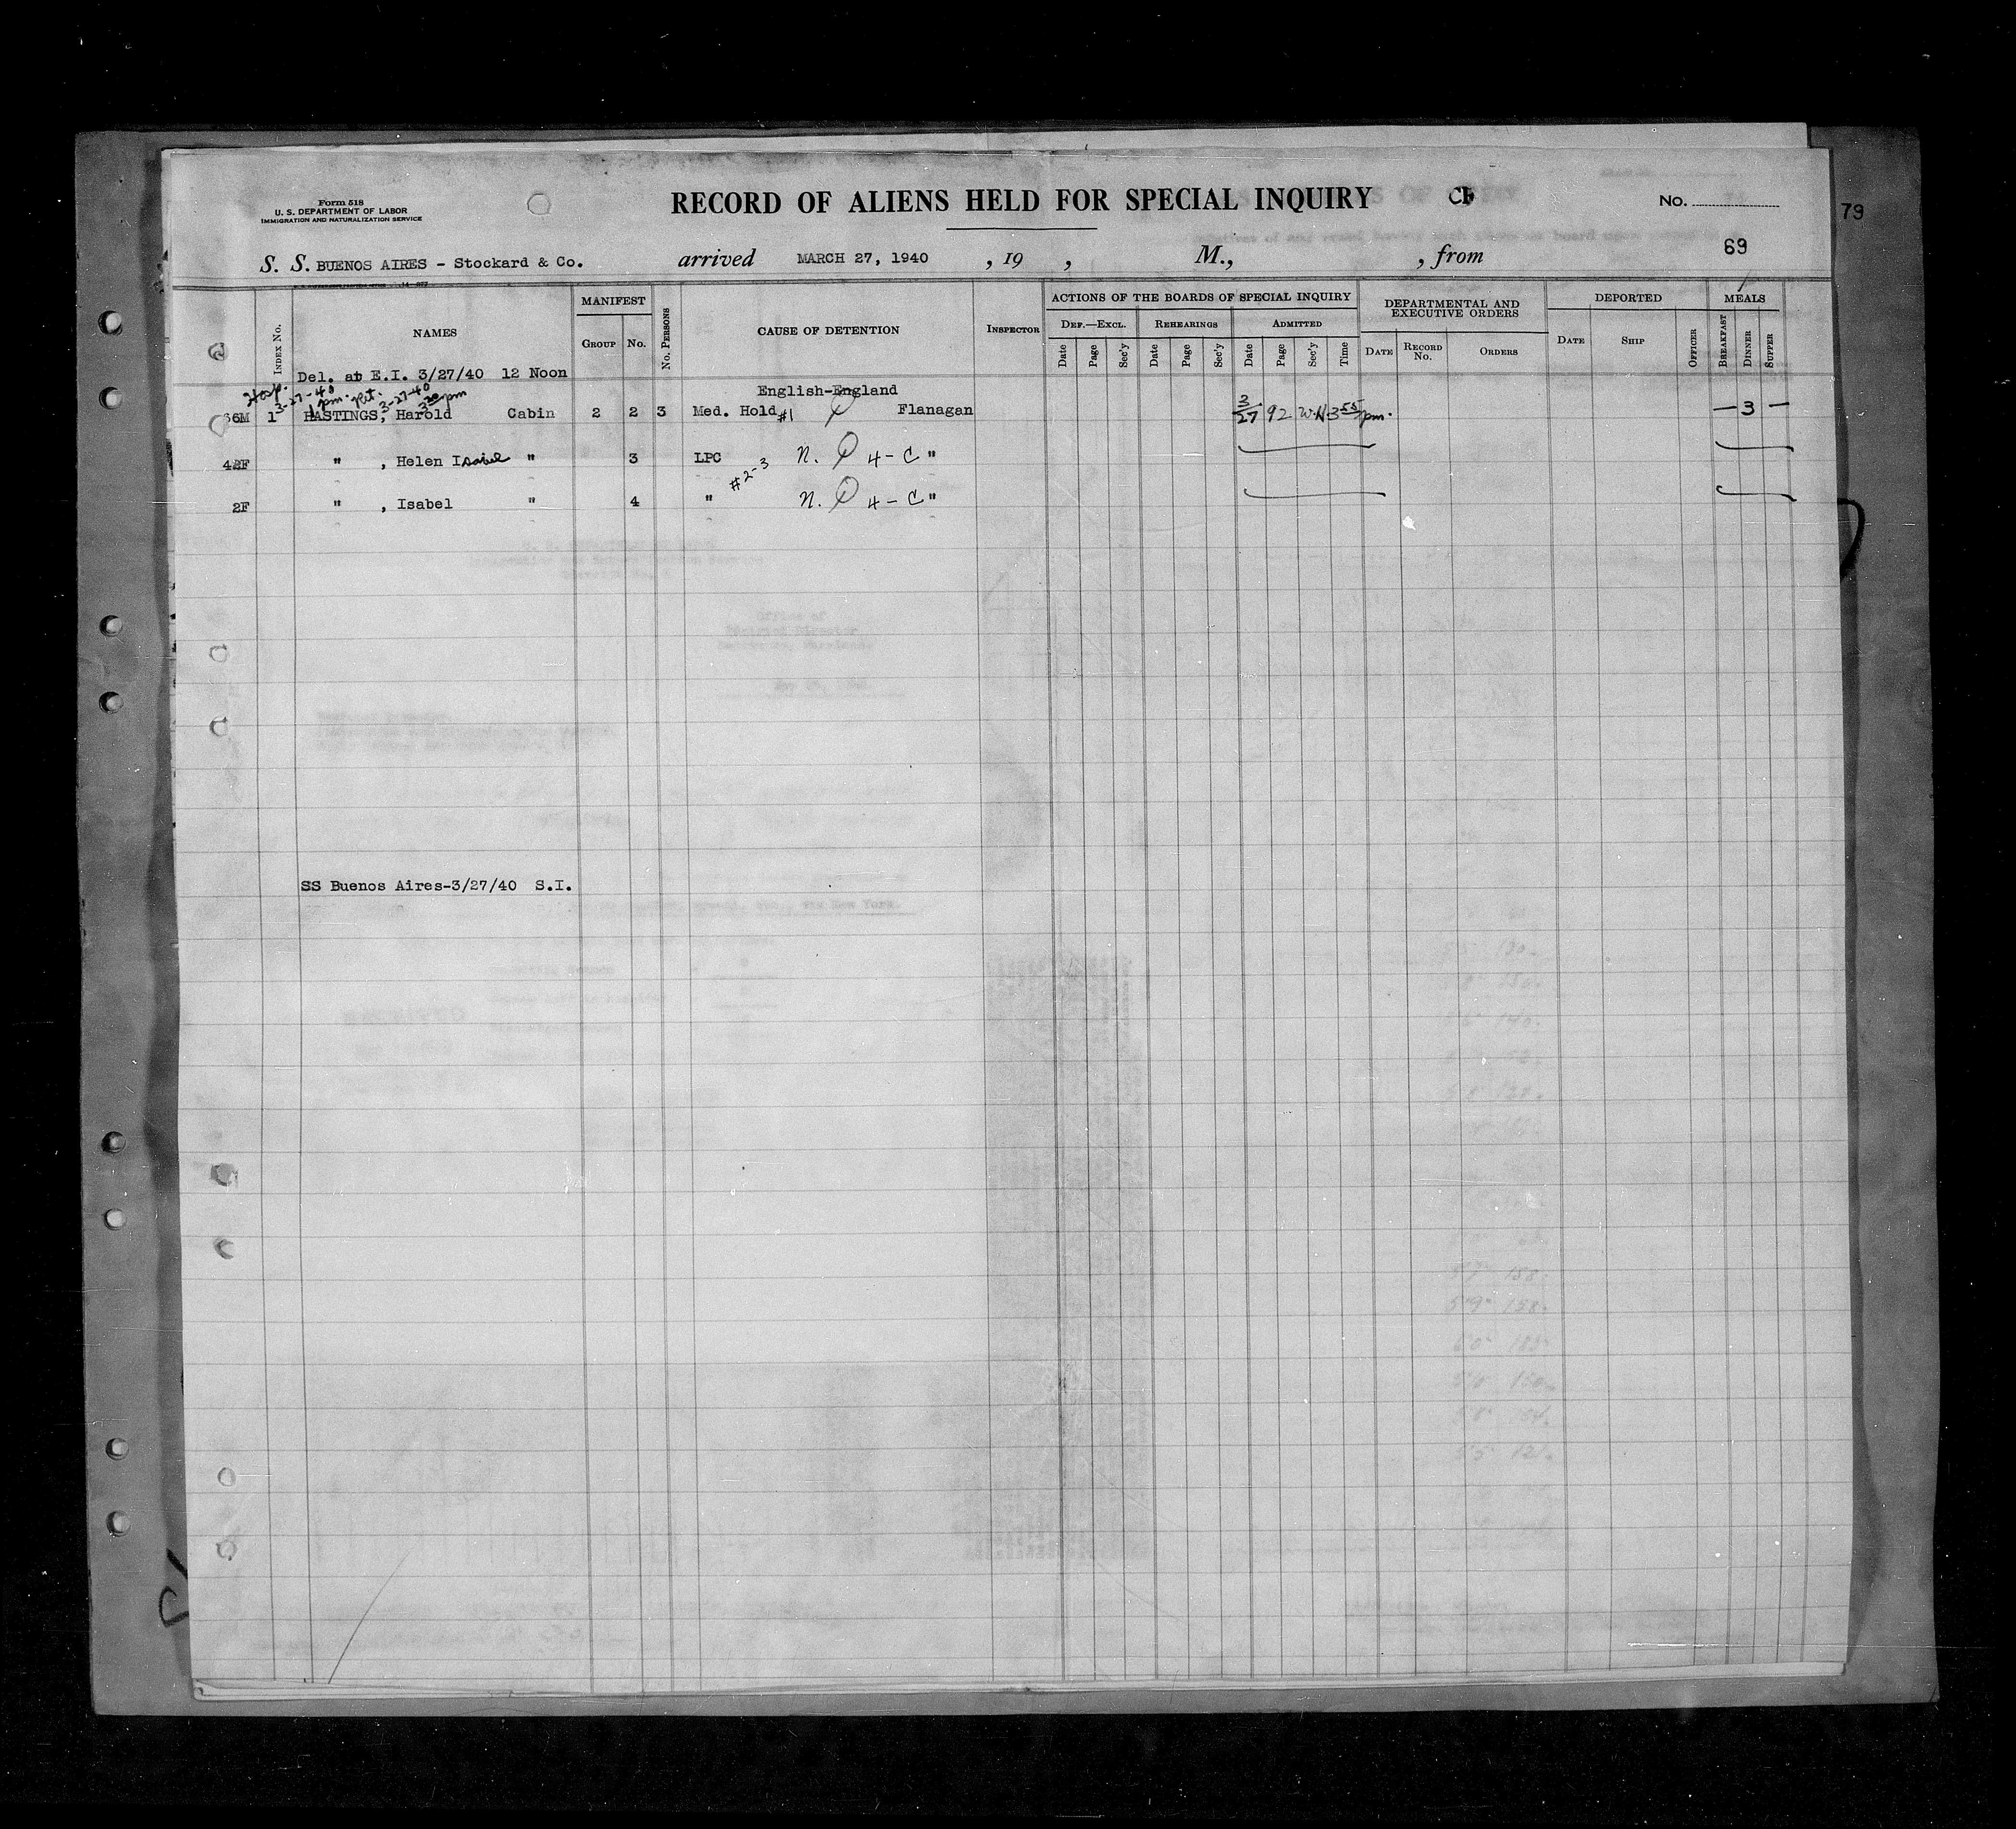 Form 518
U. S. DEPARTMENT OF LABOR
IMMIGRATION AND NATURALIZATION SERVICE
RECORD OF ALIENS HELD FOR SPECIAL INQUIRY
No.
79
S. S. BUENOS AIRES - Stockard & Co. arrived MARCH 27, 1940 , 19 , M., , from 69
INDEX No.
NAMES
MANIFEST
GROUP No.
No. PERSONS
CAUSE OF DETENTION
INSPECTOR
ACTIONS OF THE BOARDS OF SPECIAL INQUIRY
DEF.—EXCL. REHEARINGS ADMITTED
Date Page Sec'y Date Page Sec'y Date Page Sec'y Time
DEPARTMENTAL AND EXECUTIVE ORDERS
DATE RECORD No. ORDERS
DEPORTED
DATE SHIP OFFICER
MEALS
BREAKFAST DINNER SUPPER
Del. at E.I. 3/27/40 12 Noon
Hosp. 3-27-40 1 pm. Ret. 3-27-40 3 20 pm
English-England
36M 1 HASTINGS, Harold Cabin 2 2 3 Med. Hold #1 Flanagan 3/27 92 W.H. 3 55 pm. — 3 —
42F " , Helen Isabel " 3 LPC #2-3 N. 4-C "
2F " , Isabel " 4 " N. 4-C "
SS Buenos Aires-3/27/40 S.I.